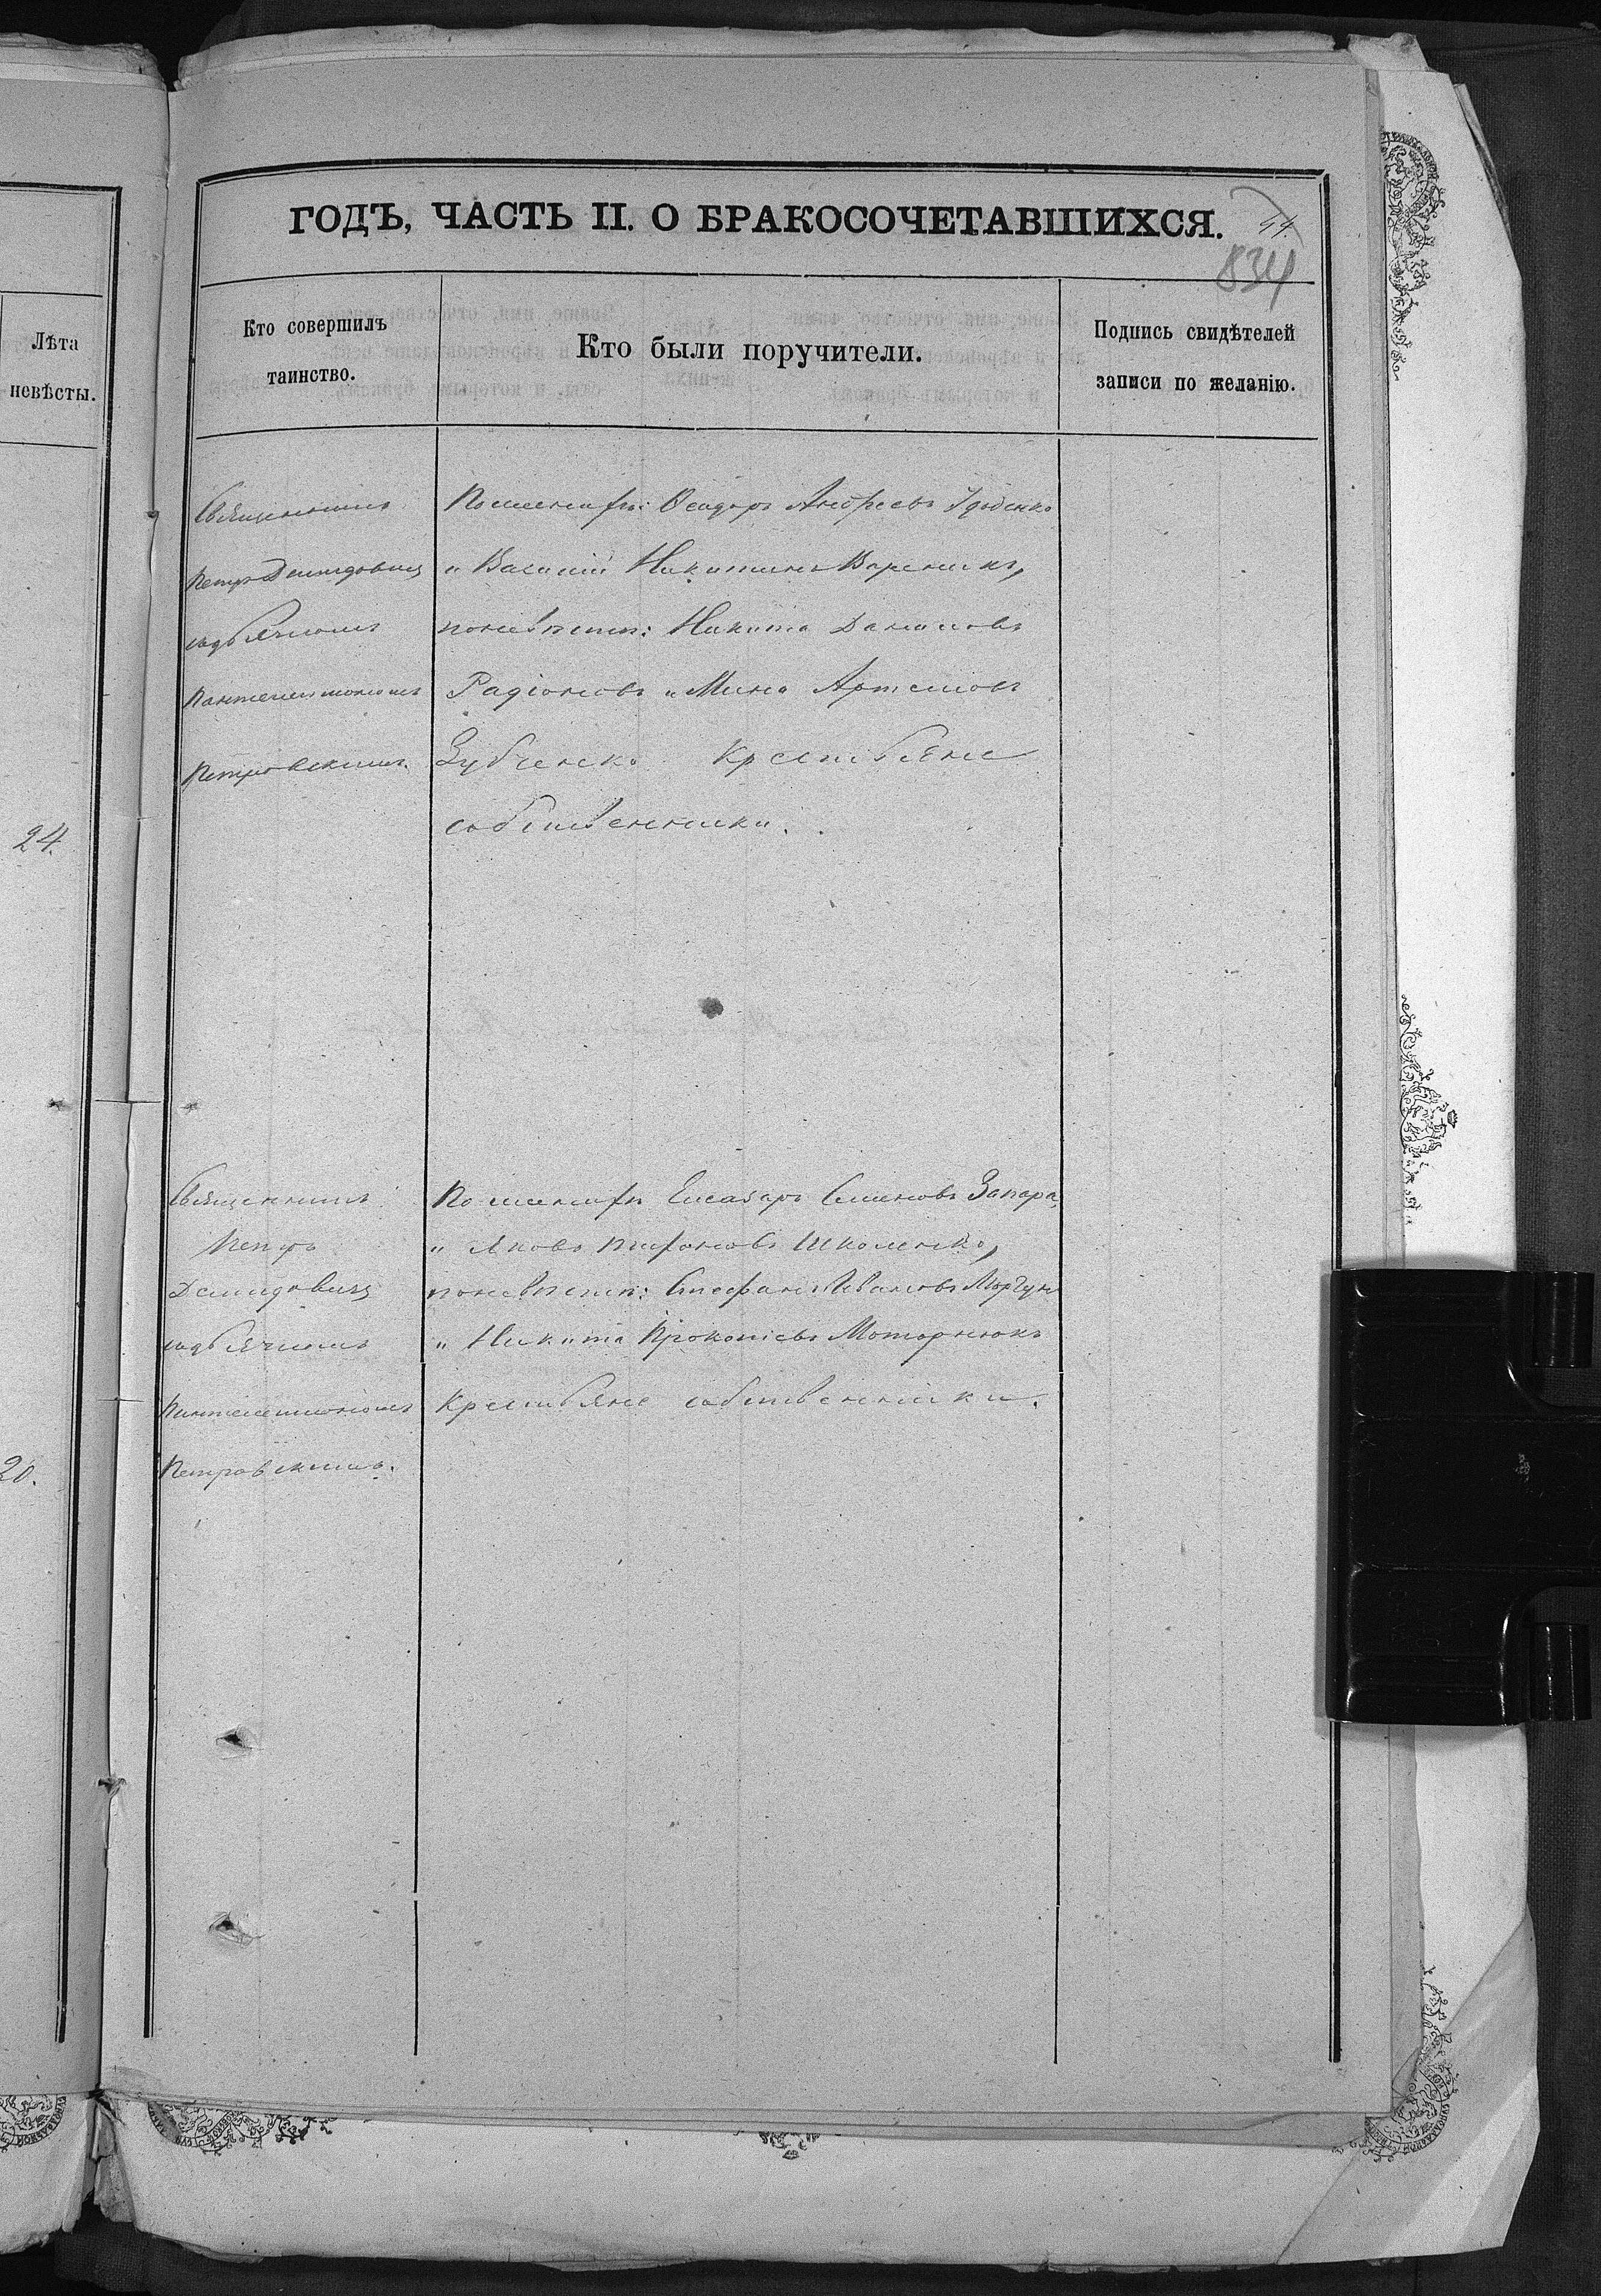 ГОДЪ, ЧАСТЬ II. О БРАКОСОЧЕТАВШИХСЯ.
834
Лѣта
невѣсты.
Кто совершилъ
таинство.
Кто были поручители.
Подпись свидѣтелей
записи по желанію.
Священникъ
Петръ Демидовичъ
съ дьячкомъ
Пантелеимономъ
Петровскимъ.
По женихѣ: Ѳеодоръ Андреевъ
и Василій Никитинъ Вареникъ,
по невѣстѣ: Никита Даниловъ
Радіоновъ и Мина Артемовъ
Зубченко крестьяне
собственники.
24.
Священникъ
Петръ
Демидовичъ
съ дьячкомъ
Пантелеимономъ
Петровскимъ.
По женихѣ Елеазаръ Семеновъ Запара,
и Яковъ Трифоновъ Школенко,
по невѣстѣ: Стефанъ Ивановъ Моргунъ
и Никита Прокопіевъ Моторнюкъ
крестьяне собственники.
20.